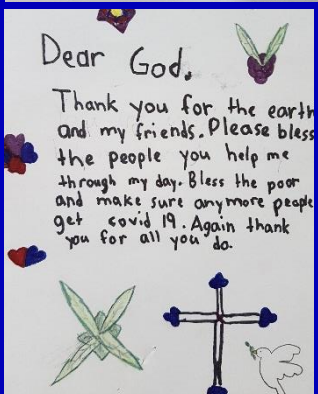 Dear God,
Thank you for the earth
and my friends. Please bless
the people you help me
through my day. Bless the poor
and make sure anymore people
get covid 19. Again thank
you for all you do.